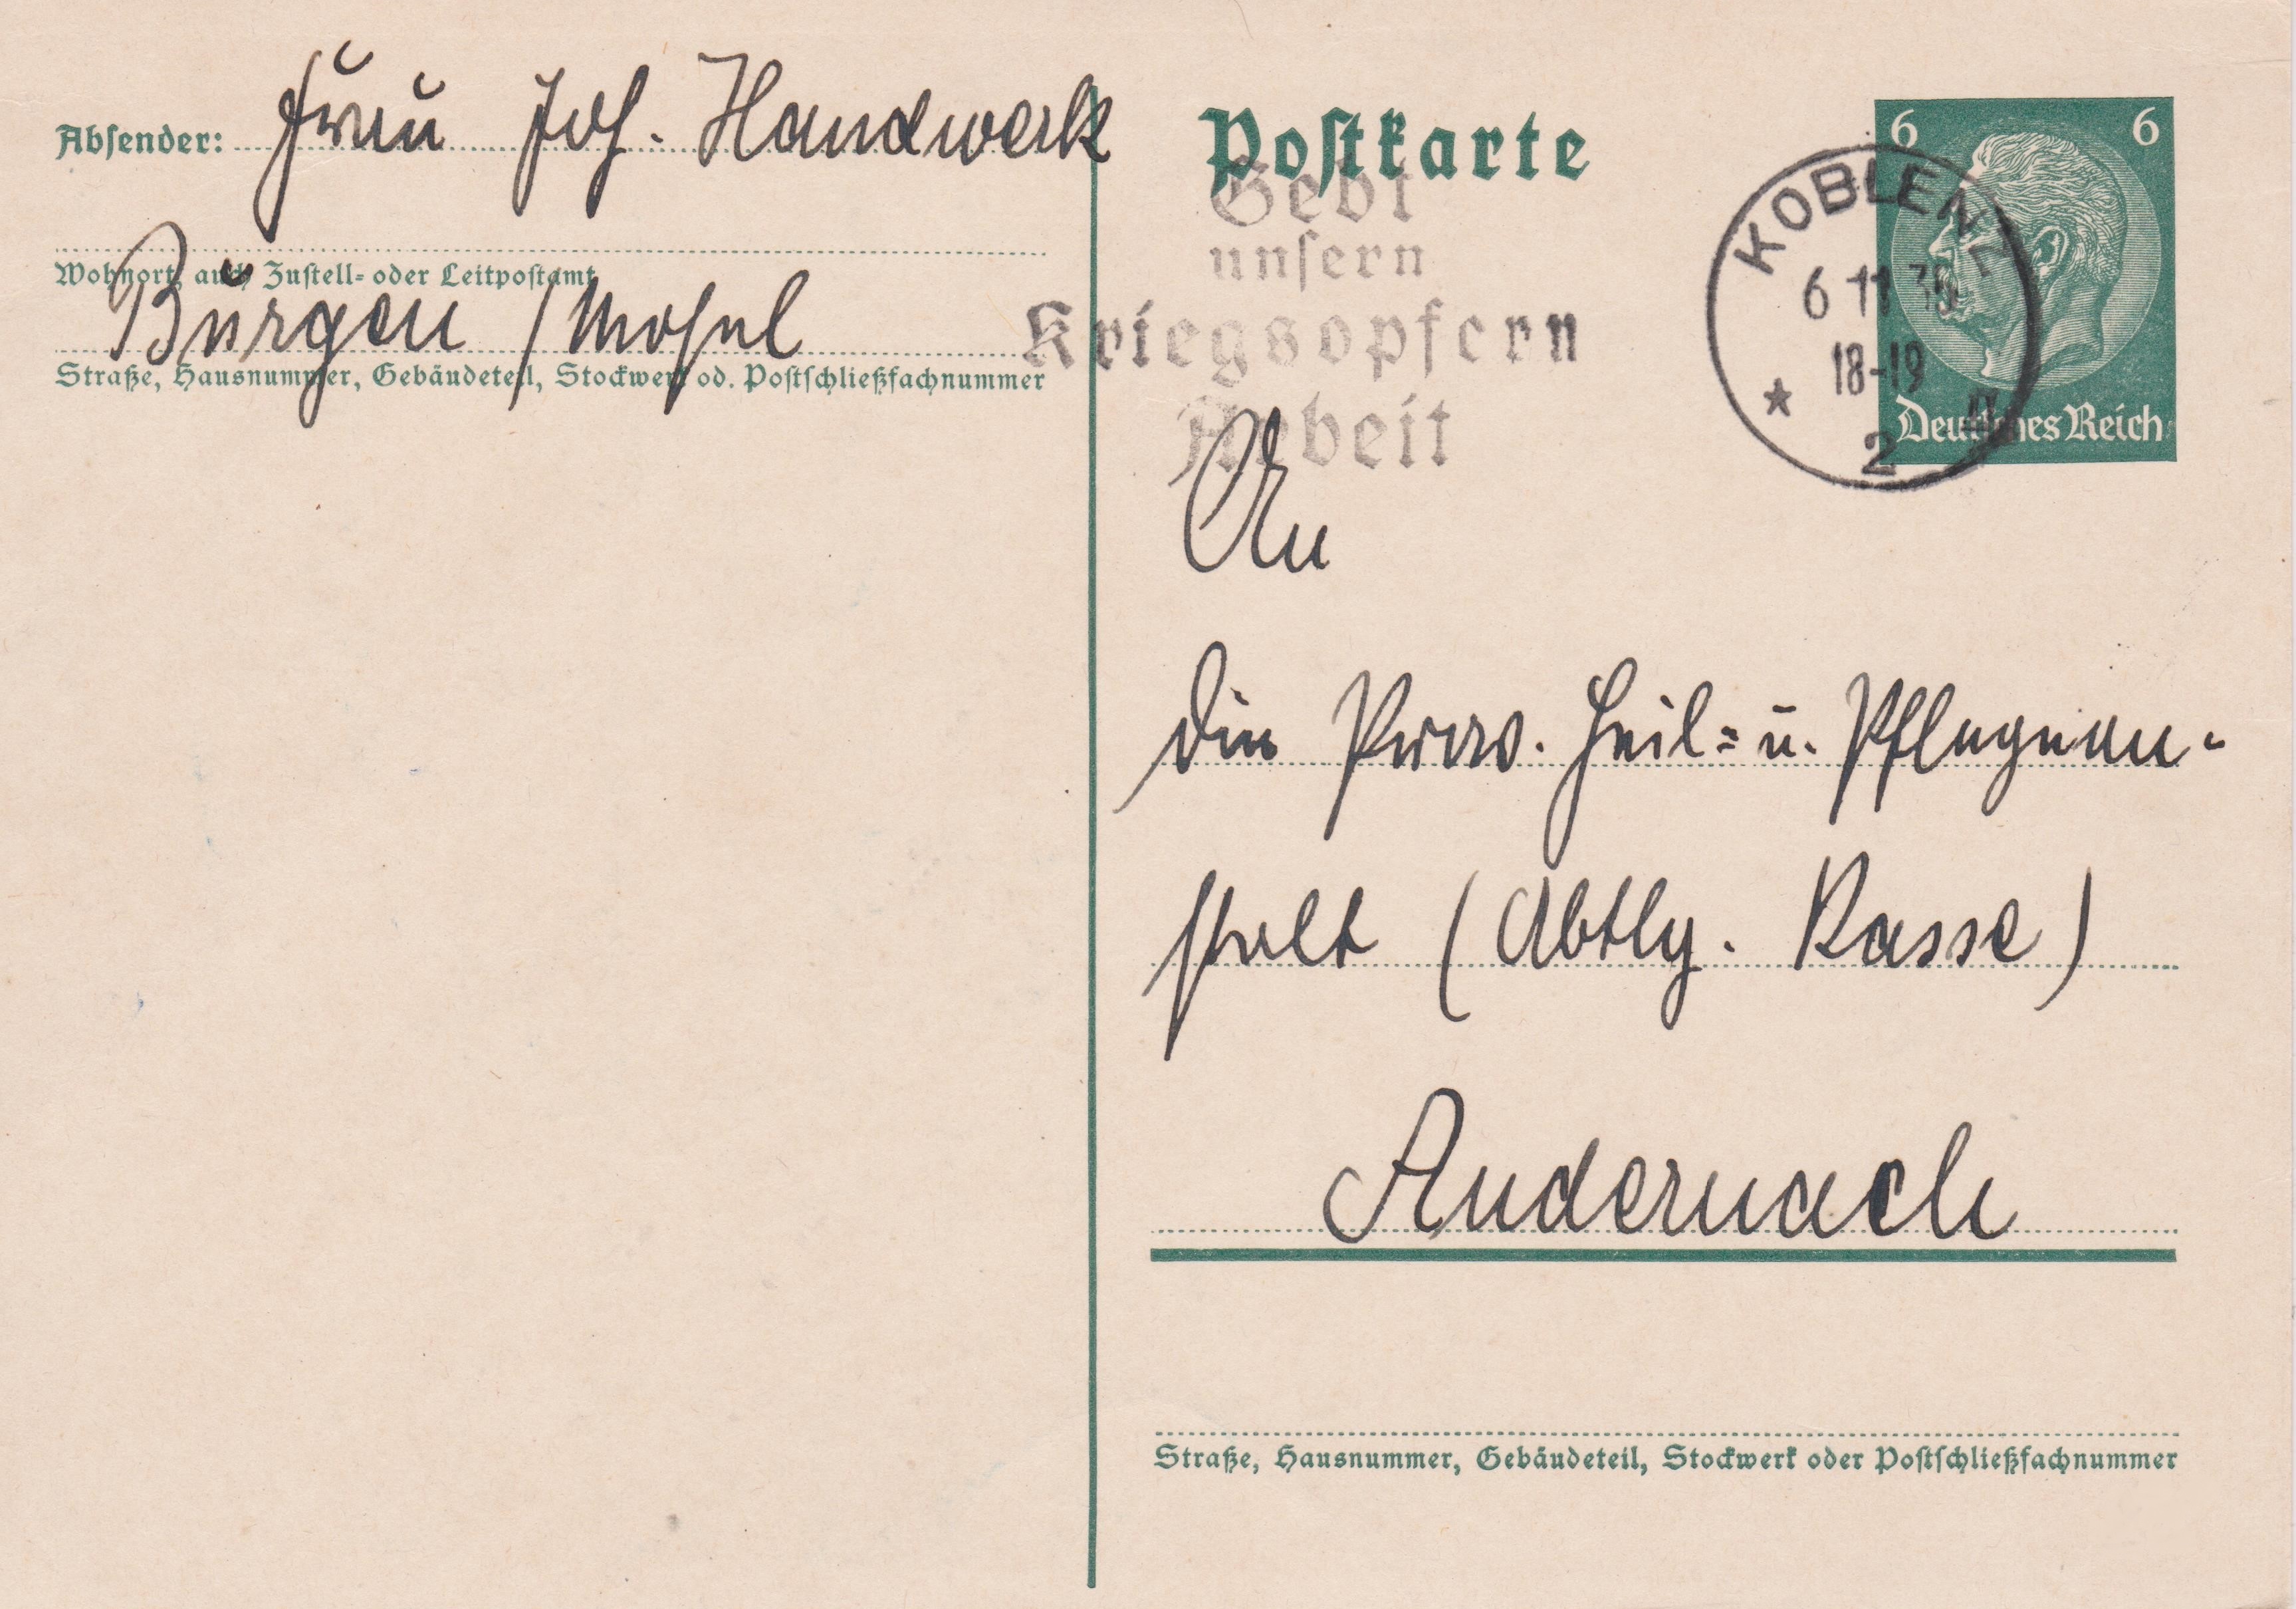 Absender: Frau Joh. Handwerk
Wohnort, auch Zustell- oder Leitpostamt
Burgen / Mosel
Straße, Hausnummer, Gebäudeteil, Stockwerk od. Postschließfachnummer
Postkarte
Gebt
unsern
Kriegsopfern
Arbeit
6 6
KOBLENZ
6 11
18-19
* 2
Deutsches Reich
An
die Prov. Heil= u. Pflegean-
stalt (Abtlg. Kasse)
Andernach
Straße, Hausnummer, Gebäudeteil, Stockwerk oder Postschließfachnummer